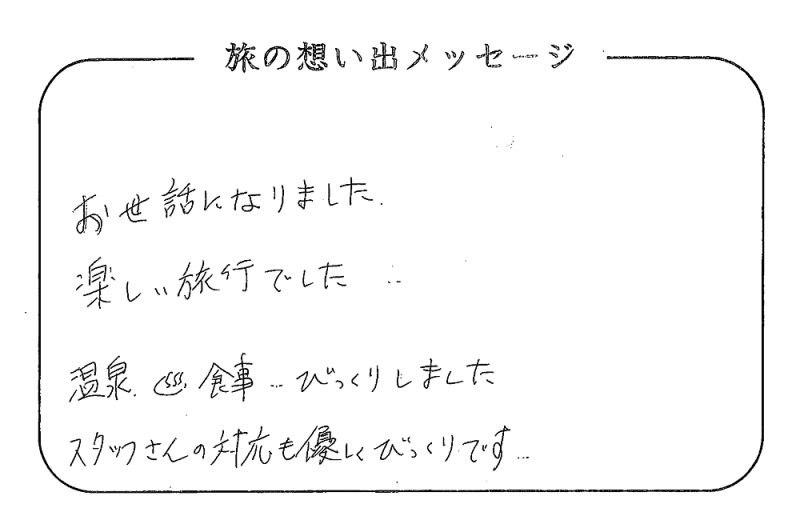 旅の想い出メッセージ
お世話になりました.
楽しい旅行でした ..
温泉. ♨. 食事... びっくりしました
スタッフさんの対応も優しくびっくりです...